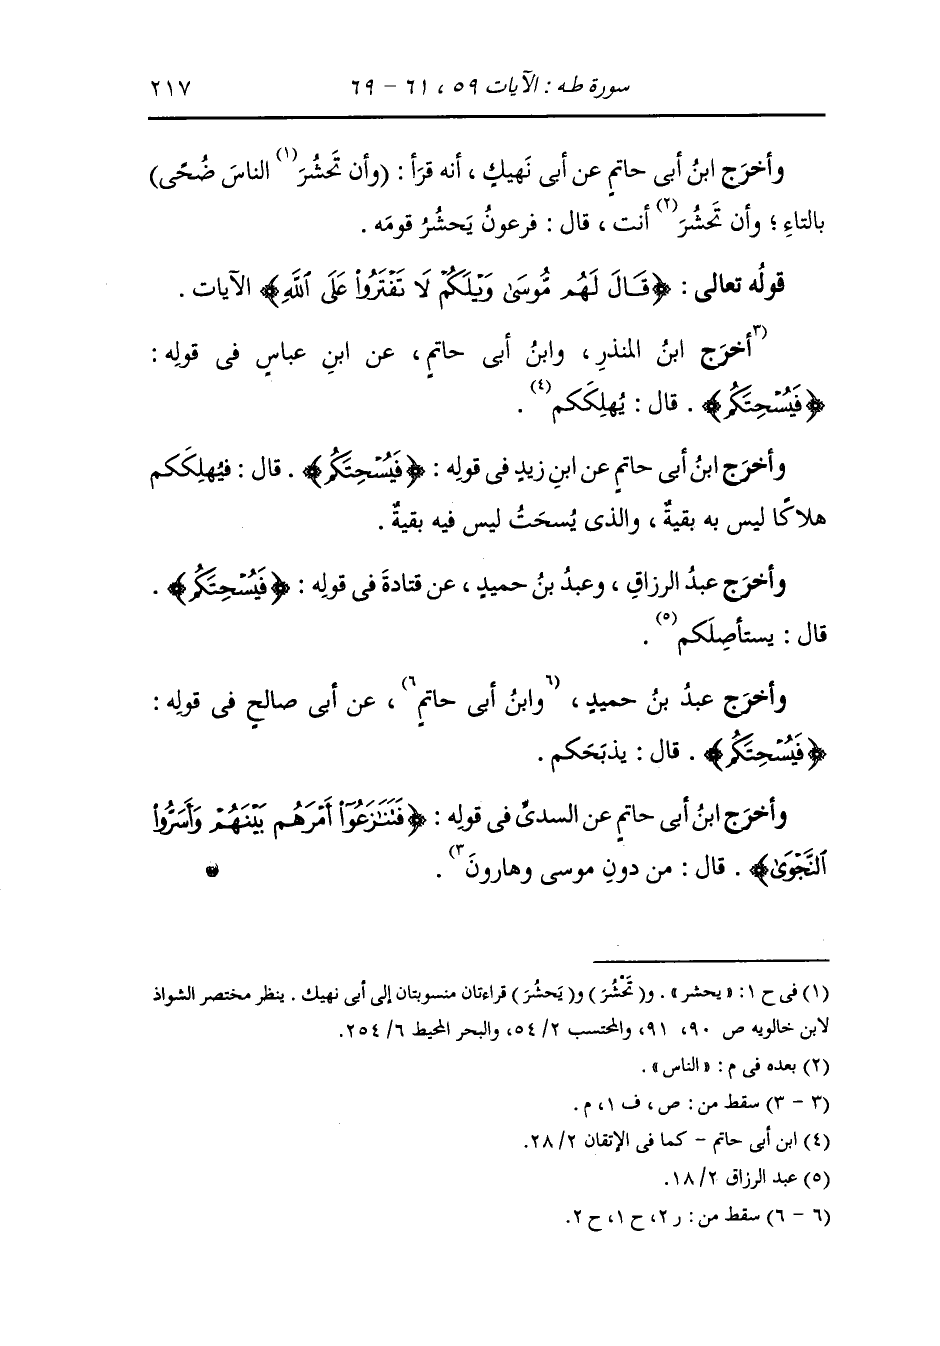 سورة طه : الآيات ٥٩ ، ٦١ - ٦٩ ٢١٧
وأخرَج ابنُ أبى حاتمٍ عن أبى نَهيكٍ ، أنه قرَأ : (وأن تَحشُرَ(١) الناسَ ضُحًى)
بالتاءِ ؛ وأن تَحشُرَ(٢) أنت ، قال : فرعونُ يَحشُرُ قومَه .
قولُه تعالى : ﴿قَالَ لَهُم مُّوسَىٰ وَيْلَكُمْ لَا تَفْتَرُوا۟ عَلَى ٱللَّهِ﴾ الآيات .
(٣أخرَج ابنُ المنذرِ ، وابنُ أبى حاتمٍ ، عن ابنِ عباسٍ فى قولِه :
﴿فَيُسْحِتَكُم﴾ . قال : يُهلِكَكم(٤) .
وأخرَج ابنُ أبى حاتمٍ عن ابنِ زيدٍ فى قولِه : ﴿فَيُسْحِتَكُم﴾ . قال : فيُهلِكَكم
هلاكًا ليس به بقيةٌ ، والذى يُسحَتُ ليس فيه بقيةٌ .
وأخرَج عبدُ الرزاقِ ، وعبدُ بنُ حميدٍ ، عن قتادةَ فى قولِه : ﴿فَيُسْحِتَكُم﴾ .
قال : يستأصِلَكم(٥) .
وأخرَج عبدُ بنُ حميدٍ ، (٦وابنُ أبى حاتمٍ٦) ، عن أبى صالحٍ فى قولِه :
﴿فَيُسْحِتَكُم﴾ . قال : يذبَحَكم .
وأخرَج ابنُ أبى حاتمٍ عن السدىِّ فى قولِه : ﴿فَتَنَٰزَعُوٓا۟ أَمْرَهُم بَيْنَهُمْ وَأَسَرُّوا۟
ٱلنَّجْوَىٰ﴾ . قال : من دونِ موسى وهارونَ٣) .
(١) فى ح ١ : « يحشر » . و( تَحْشُرَ ) و( يَحشُرَ ) قراءتان منسوبتان إلى أبى نهيك . ينظر مختصر الشواذ
لابن خالويه ص ٩٠، ٩١، والمحتسب ٢/ ٥٤، والبحر المحيط ٦/ ٢٥٤.
(٢) بعده فى م : « الناس » .
(٣ - ٣) سقط من : ص ، ف ١، م .
(٤) ابن أبى حاتم - كما فى الإتقان ٢/ ٢٨.
(٥) عبد الرزاق ٢/ ١٨.
(٦ - ٦) سقط من : ر ٢، ح ١، ح ٢.